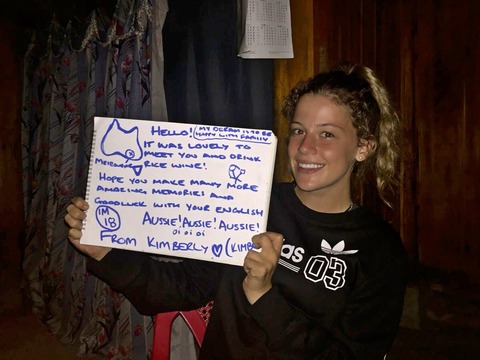 HELLO! MY DREAM IS TO BE
HAPPY WITH FAMILY
IT WAS LOVELY TO
MEET YOU AND DRINK
RICE WINE!
HOPE YOU MAKE MANY MORE
AMAZING MEMORIES AND
GOODLUCK WITH YOUR ENGLISH
I'M
18
AUSSIE! AUSSIE! AUSSIE!
OI OI OI
FROM KIMBERLY (KIMBE
das
03